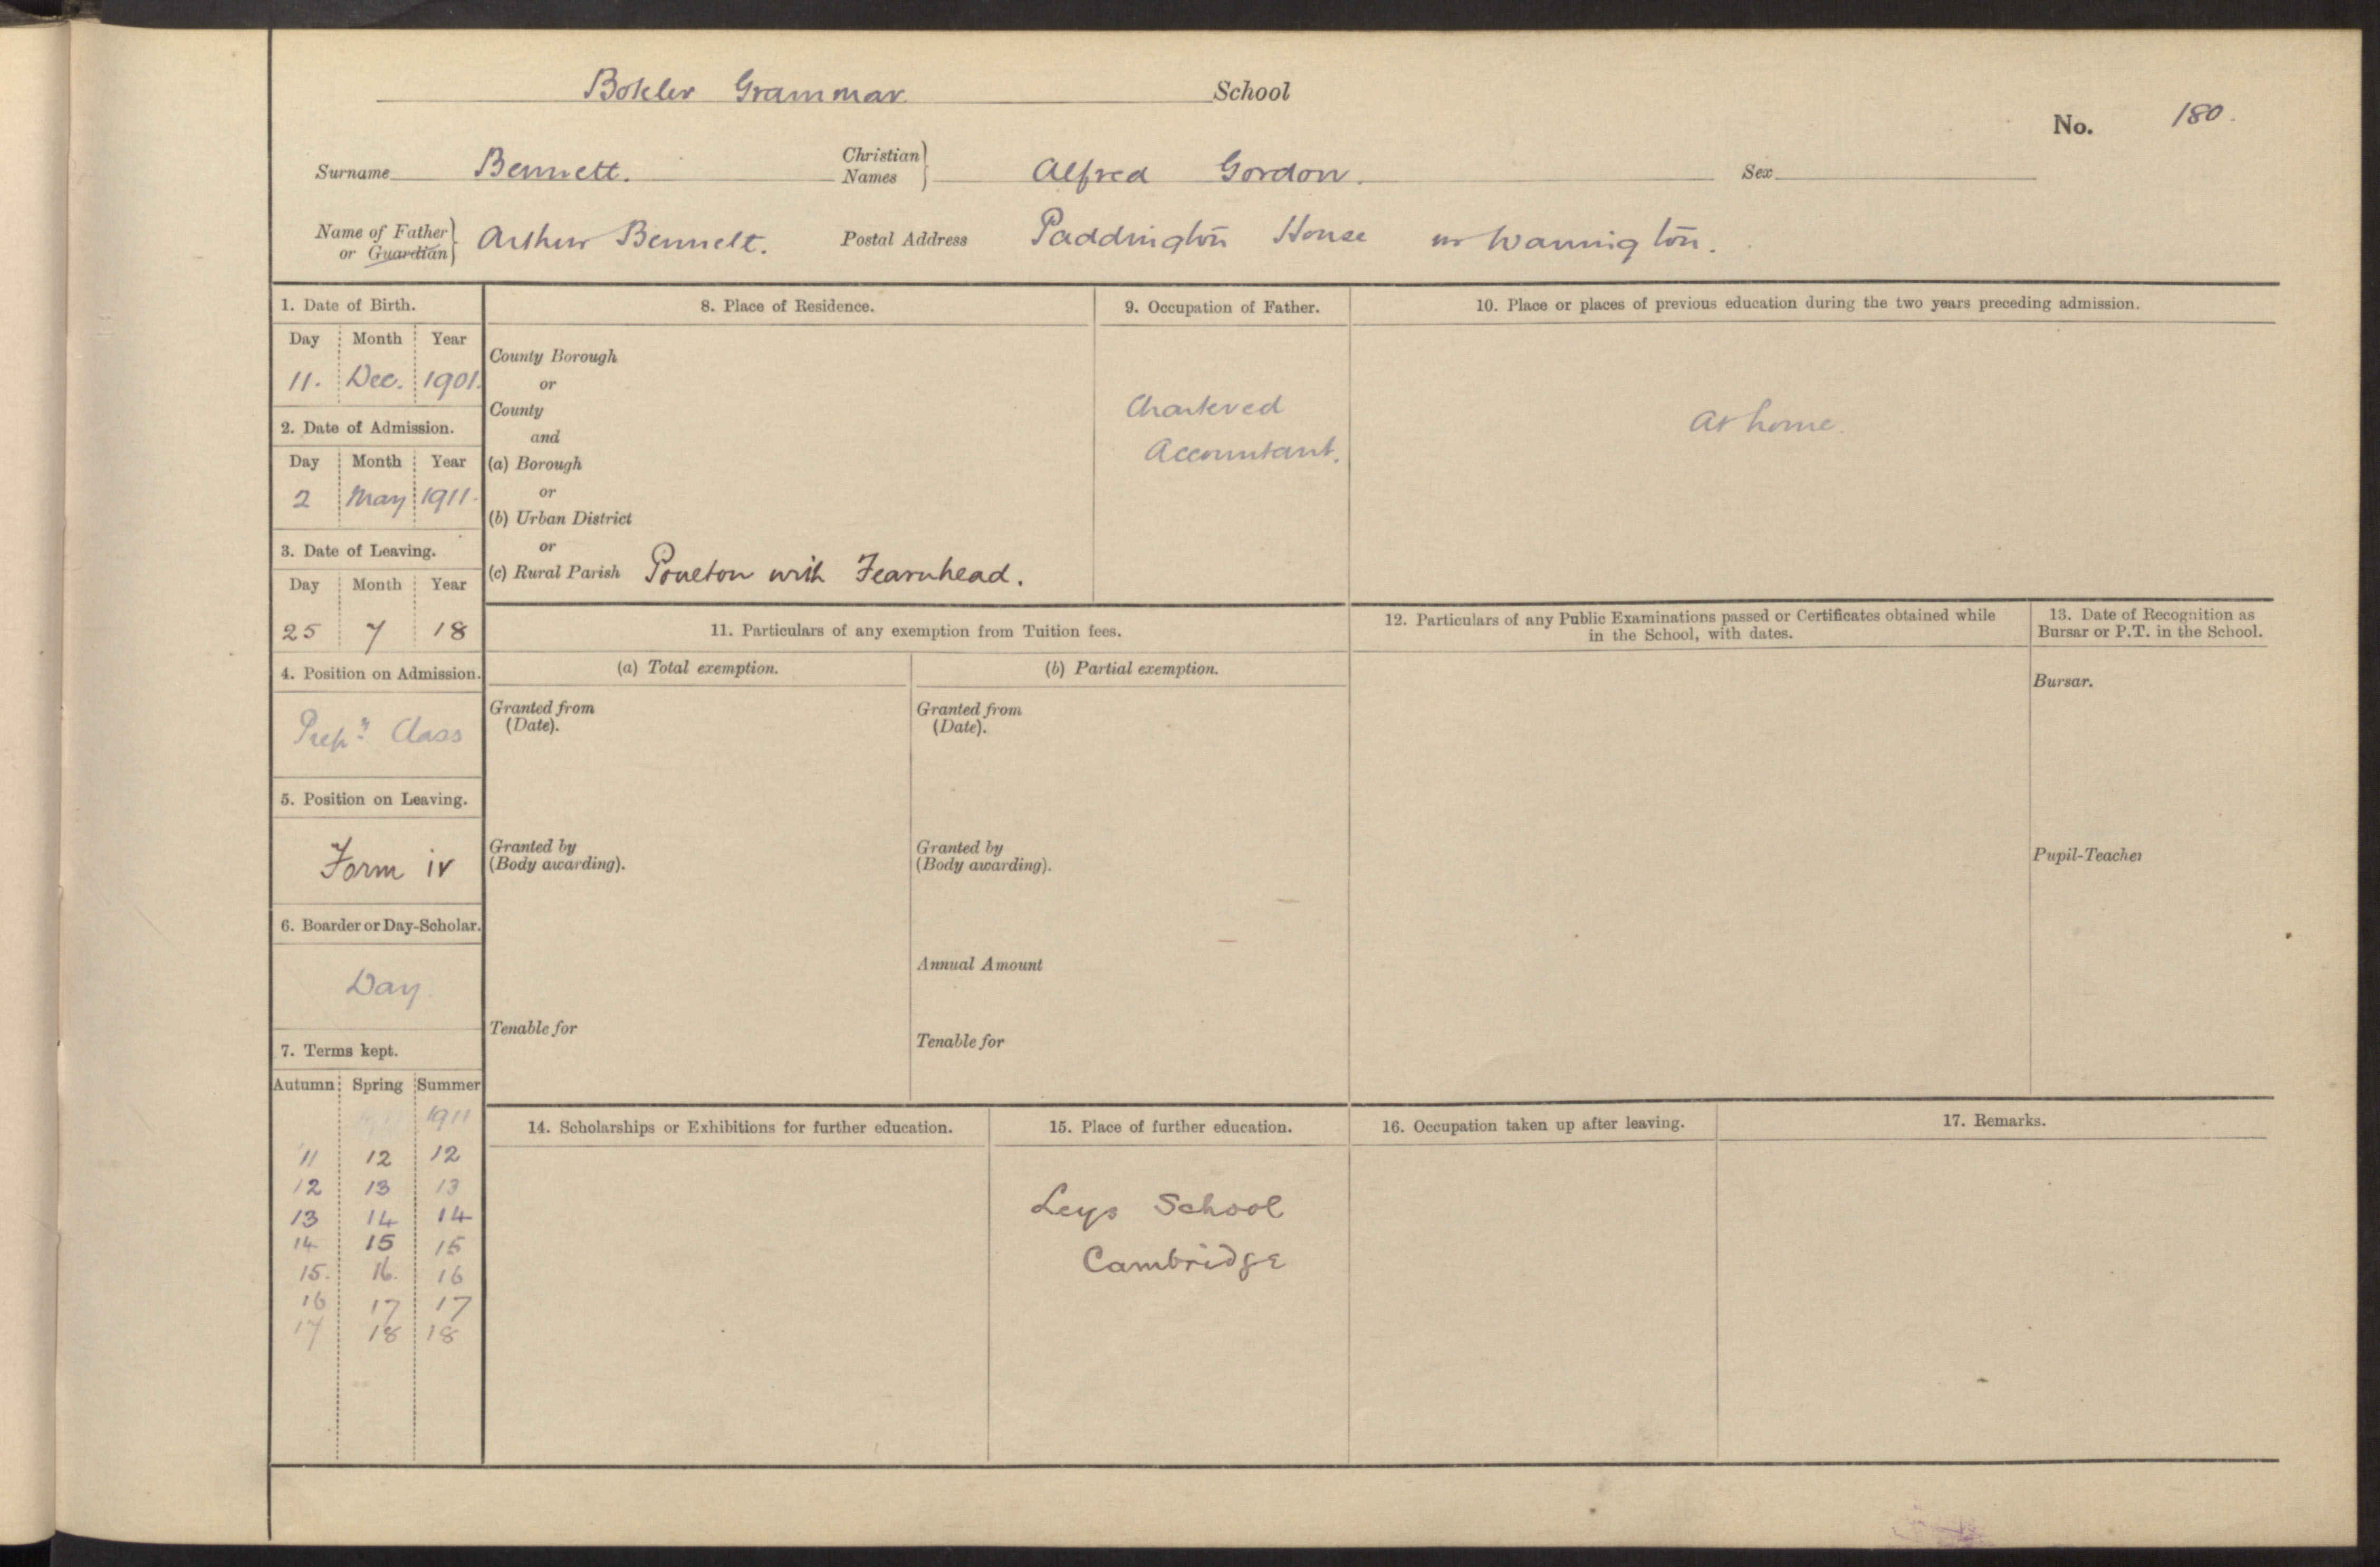 Boteler Grammar School
No. 180.
Surname Bennett. Christian Names Alfred Gordon. Sex
Name of Father or Guardian Arthur Bennett. Postal Address Paddington House nr Warrington.
1. Date of Birth.
Day Month Year
11. Dec. 1901.
2. Date of Admission.
Day Month Year
2 May 1911.
3. Date of Leaving.
Day Month Year
25 7 18
4. Position on Admission.
Prepy Class
5. Position on Leaving.
Form iv
6. Boarder or Day-Scholar.
Day
7. Terms kept.
Autumn Spring Summer
1911
11 12 12
12 13 13
13 14 14
14 15 15
15. 16. 16
16 17 17
17 18 18
8. Place of Residence.
County Borough
or
County
and
(a) Borough
or
(b) Urban District
or
(c) Rural Parish Poulton with Fearnhead.
9. Occupation of Father.
Chartered
Accountant.
10. Place or places of previous education during the two years preceding admission.
At home.
11. Particulars of any exemption from Tuition fees.
(a) Total exemption.
Granted from
(Date).
Granted by
(Body awarding).
Tenable for
(b) Partial exemption.
Granted from
(Date).
Granted by
(Body awarding).
Annual Amount
Tenable for
12. Particulars of any Public Examinations passed or Certificates obtained while
in the School, with dates.
13. Date of Recognition as
Bursar or P.T. in the School.
Bursar.
Pupil-Teacher
14. Scholarships or Exhibitions for further education.
15. Place of further education.
Leys School
Cambridge
16. Occupation taken up after leaving.
17. Remarks.